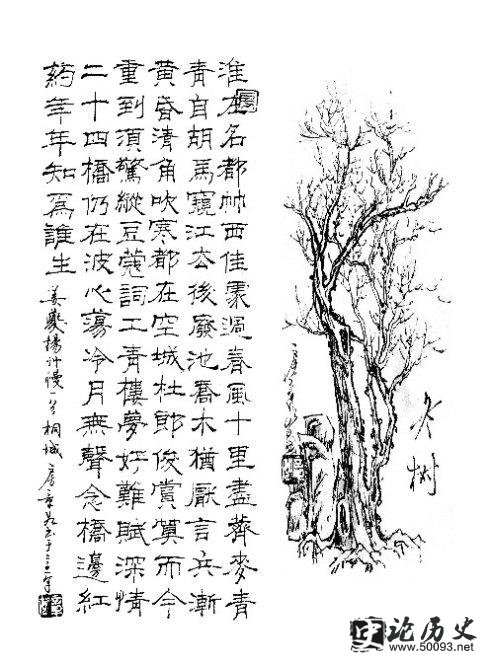 淮左名都竹西佳處過春風十里盡薺麥青
青自胡馬窺江去後廢池喬木猶厭言兵漸
黃昏清角吹寒都在空城杜郎俊賞算而今
重到須驚縱豆蔻詞工青樓夢好難賦深情
二十四橋仍在波心蕩冷月無聲念橋邊紅
葯年年知爲誰生
姜夔揚州慢一首桐城
冬树
史论历史
www.50093.net